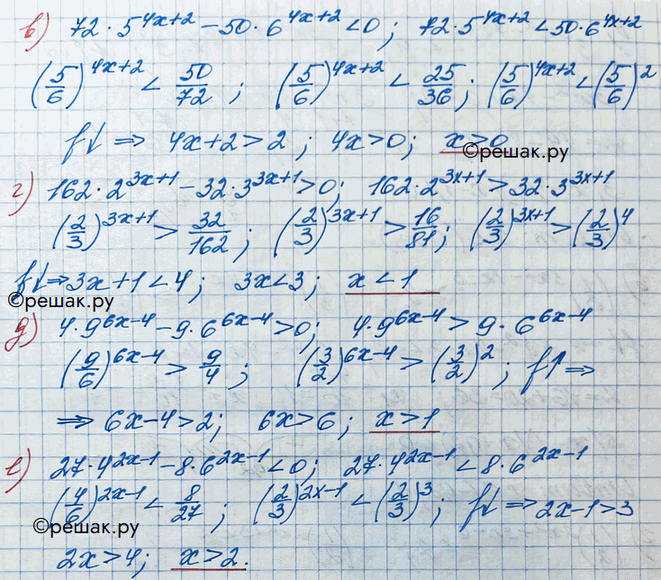 в) 72·5^(4x+2) − 50·6^(4x+2) < 0; 72·5^(4x+2) < 50·6^(4x+2)
(5/6)^(4x+2) < 50/72; (5/6)^(4x+2) < 25/36; (5/6)^(4x+2) < (5/6)^2
f↓ ⇒ 4x+2 > 2; 4x > 0; x > 0
©решак.ру
г) 162·2^(3x+1) − 32·3^(3x+1) > 0; 162·2^(3x+1) > 32·3^(3x+1)
(2/3)^(3x+1) > 32/162; (2/3)^(3x+1) > 16/81; (2/3)^(3x+1) > (2/3)^4
f↓ ⇒ 3x+1 < 4; 3x < 3; x < 1
©решак.ру
д) 4·9^(6x−4) − 9·6^(6x−4) > 0; 4·9^(6x−4) > 9·6^(6x−4)
(9/6)^(6x−4) > 9/4; (3/2)^(6x−4) > (3/2)^2; f↑ ⇒
⇒ 6x−4 > 2; 6x > 6; x > 1
е) 27·4^(2x−1) − 8·6^(2x−1) < 0; 27·4^(2x−1) < 8·6^(2x−1)
(4/6)^(2x−1) < 8/27; (2/3)^(2x−1) < (2/3)^3; f↓ ⇒ 2x−1 > 3
©решак.ру
2x > 4; x > 2.